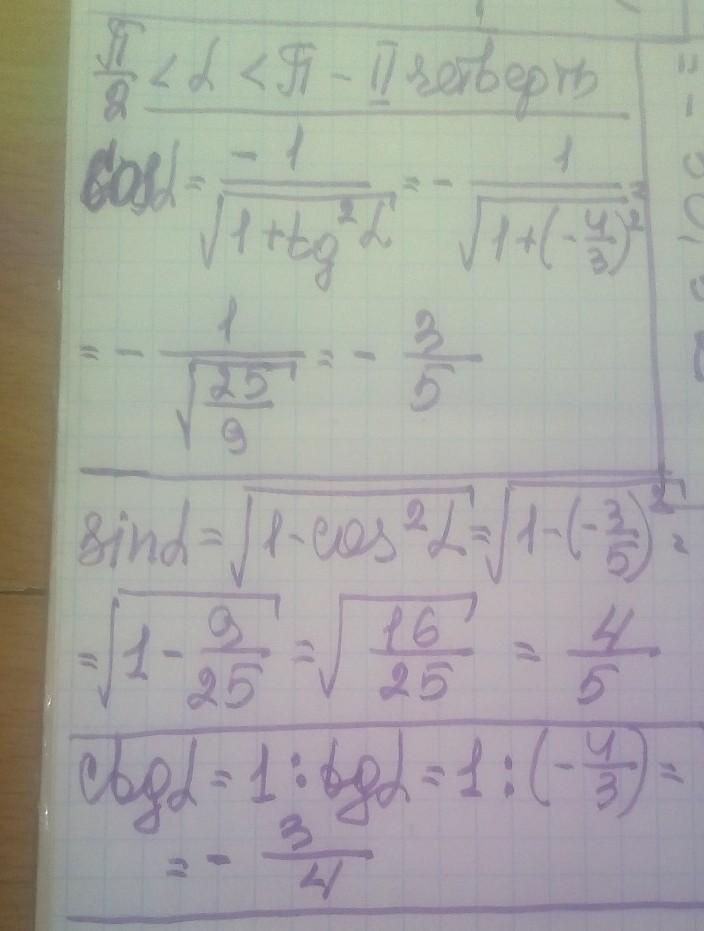 π/2 < α < π - II четверть
cosα = -1/√(1+tg²α) = - 1/√(1+(-4/3)²) =
= - 1/√(25/9) = - 3/5
sinα = √(1-cos²α) = √(1-(-3/5)²) =
= √(1 - 9/25) = √(16/25) = 4/5
ctgα = 1 : tgα = 1 : (-4/3) =
= - 3/4